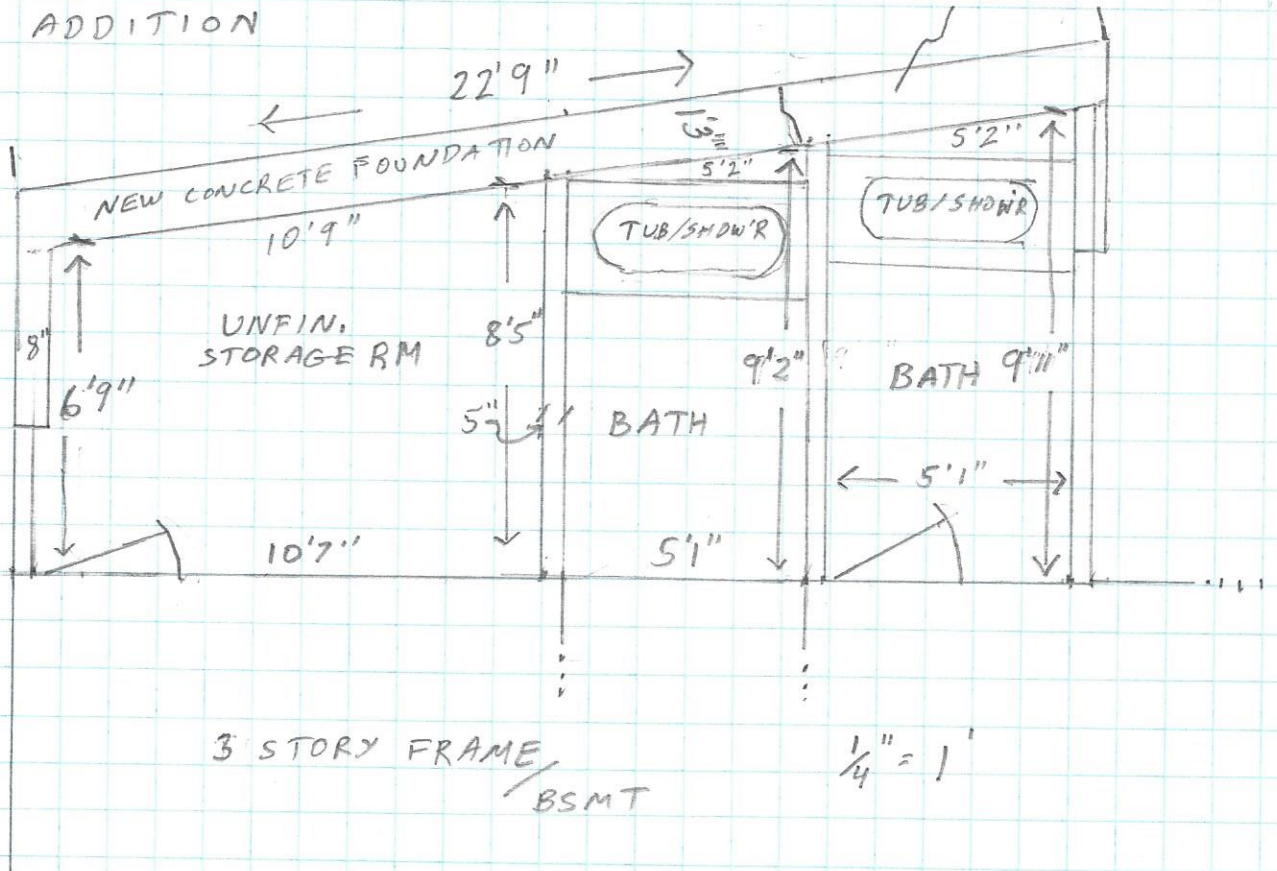 ADDITION
22'9"
NEW CONCRETE FOUNDATION
1'3"
5'2"
5'2"
10'9"
TUB/SHOW'R
TUB/SHOW'R
UNFIN.
STORAGE RM
8"
6'9"
8'5"
9'2"
BATH 9'11"
5"
BATH
5'1"
10'7"
5'1"
3 STORY FRAME/
BSMT
1/4" = 1'